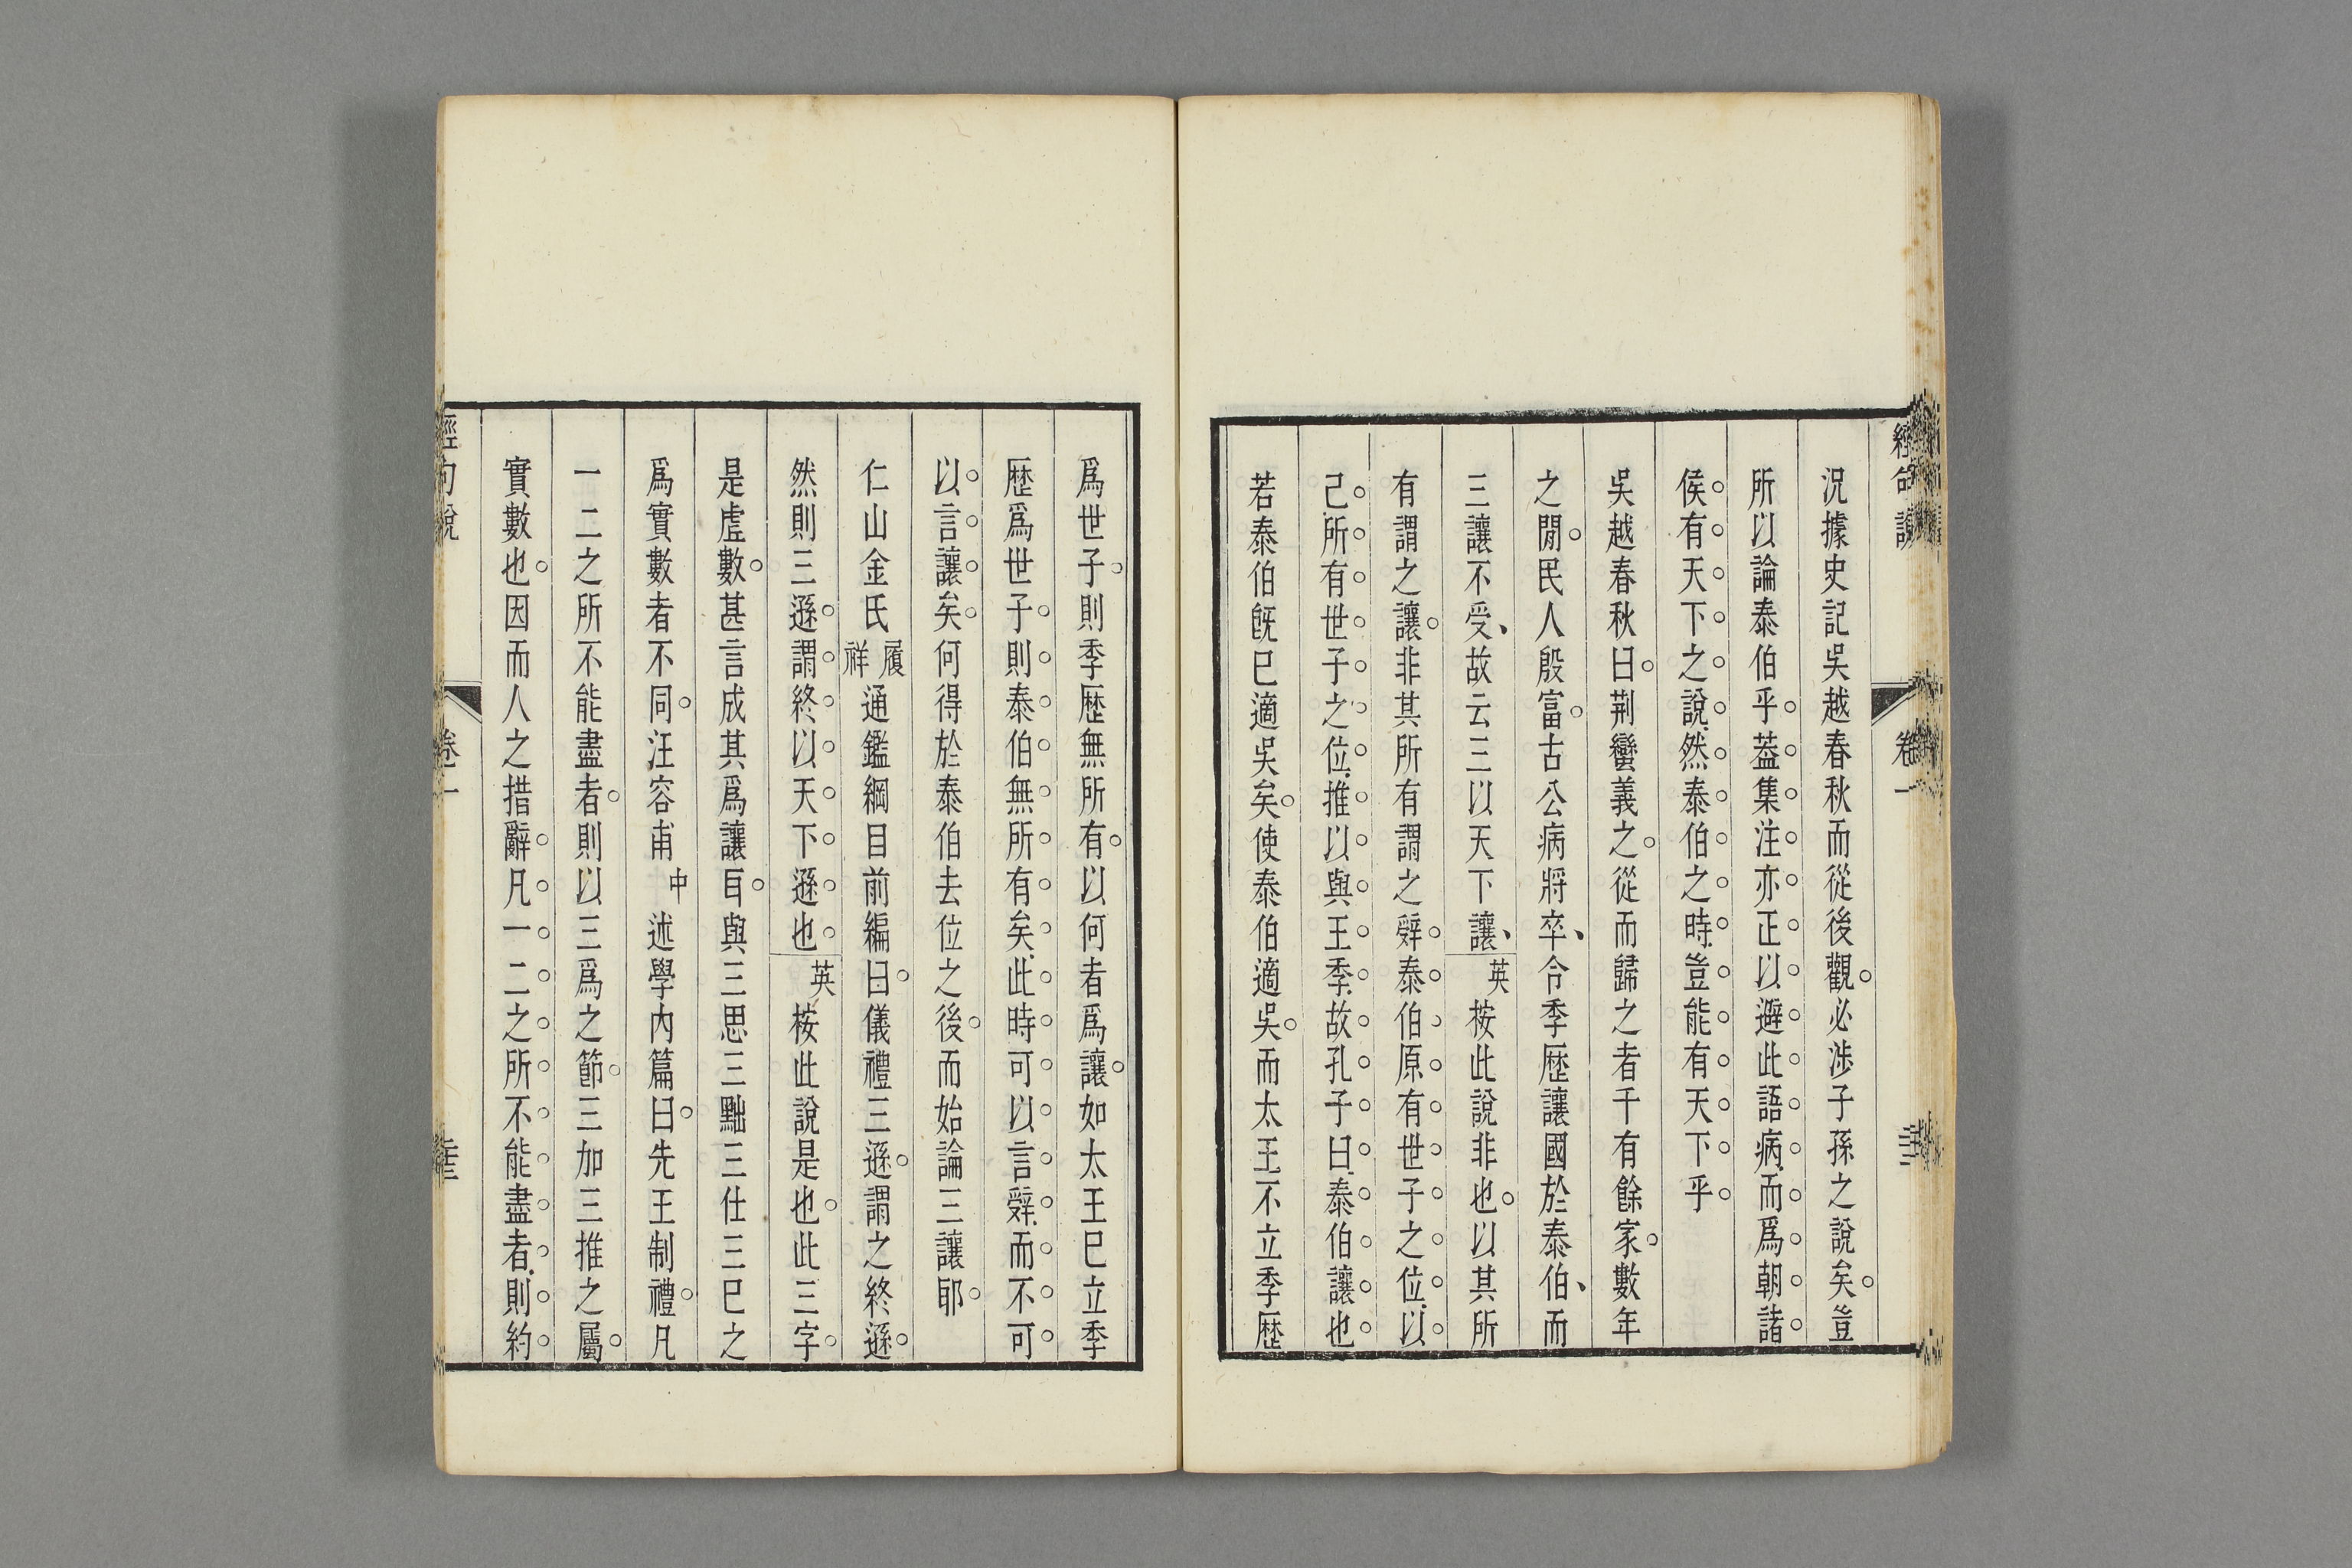 況據史記吳越春秋而從後觀必涉子孫之說矣豈
所以論泰伯乎葢集注亦正以避此語病而爲朝諸
侯有天下之說然泰伯之時豈能有天下乎
吳越春秋曰荆蠻義之從而歸之者千有餘家數年
之閒民人殷富古公病將卒令季歷讓國於泰伯而
三讓不受故云三以天下讓英桉此說非也以其所
有謂之讓非其所有謂之辤泰伯原有世子之位以
己所有世子之位推以與王季故孔子曰泰伯讓也
若泰伯旣巳適吳矣使泰伯適吳而太王不立季歷
爲世子則季歷無所有以何者爲讓如太王巳立季
歷爲世子則泰伯無所有矣此時可以言辤而不可
以言讓矣何得於泰伯去位之後而始論三讓耶
仁山金氏履祥通鑑綱目前編曰儀禮三遜謂之終遜
然則三遜謂終以天下遜也英桉此說是也此三字
是虛數甚言成其爲讓耳與三思三黜三仕三巳之
爲實數者不同汪容甫中述學內篇曰先王制禮凡
一二之所不能盡者則以三爲之節三加三推之屬
實數也因而人之措辭凡一二之所不能盡者則約
經句說
卷一